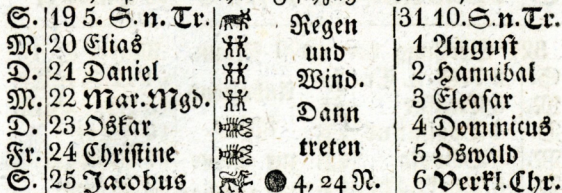 S. 19 5. S. n. Tr. Regen 31 10. S. n. Tr.
M. 20 Elias und 1 August
D. 21 Daniel Wind. 2 Hannibal
M. 22 Mar. Mgd. Dann 3 Eleasar
D. 23 Oskar 4 Dominicus
Fr. 24 Christine treten 5 Oswald
S. 25 Jacobus 4, 24 N. 6 Verkl. Chr.